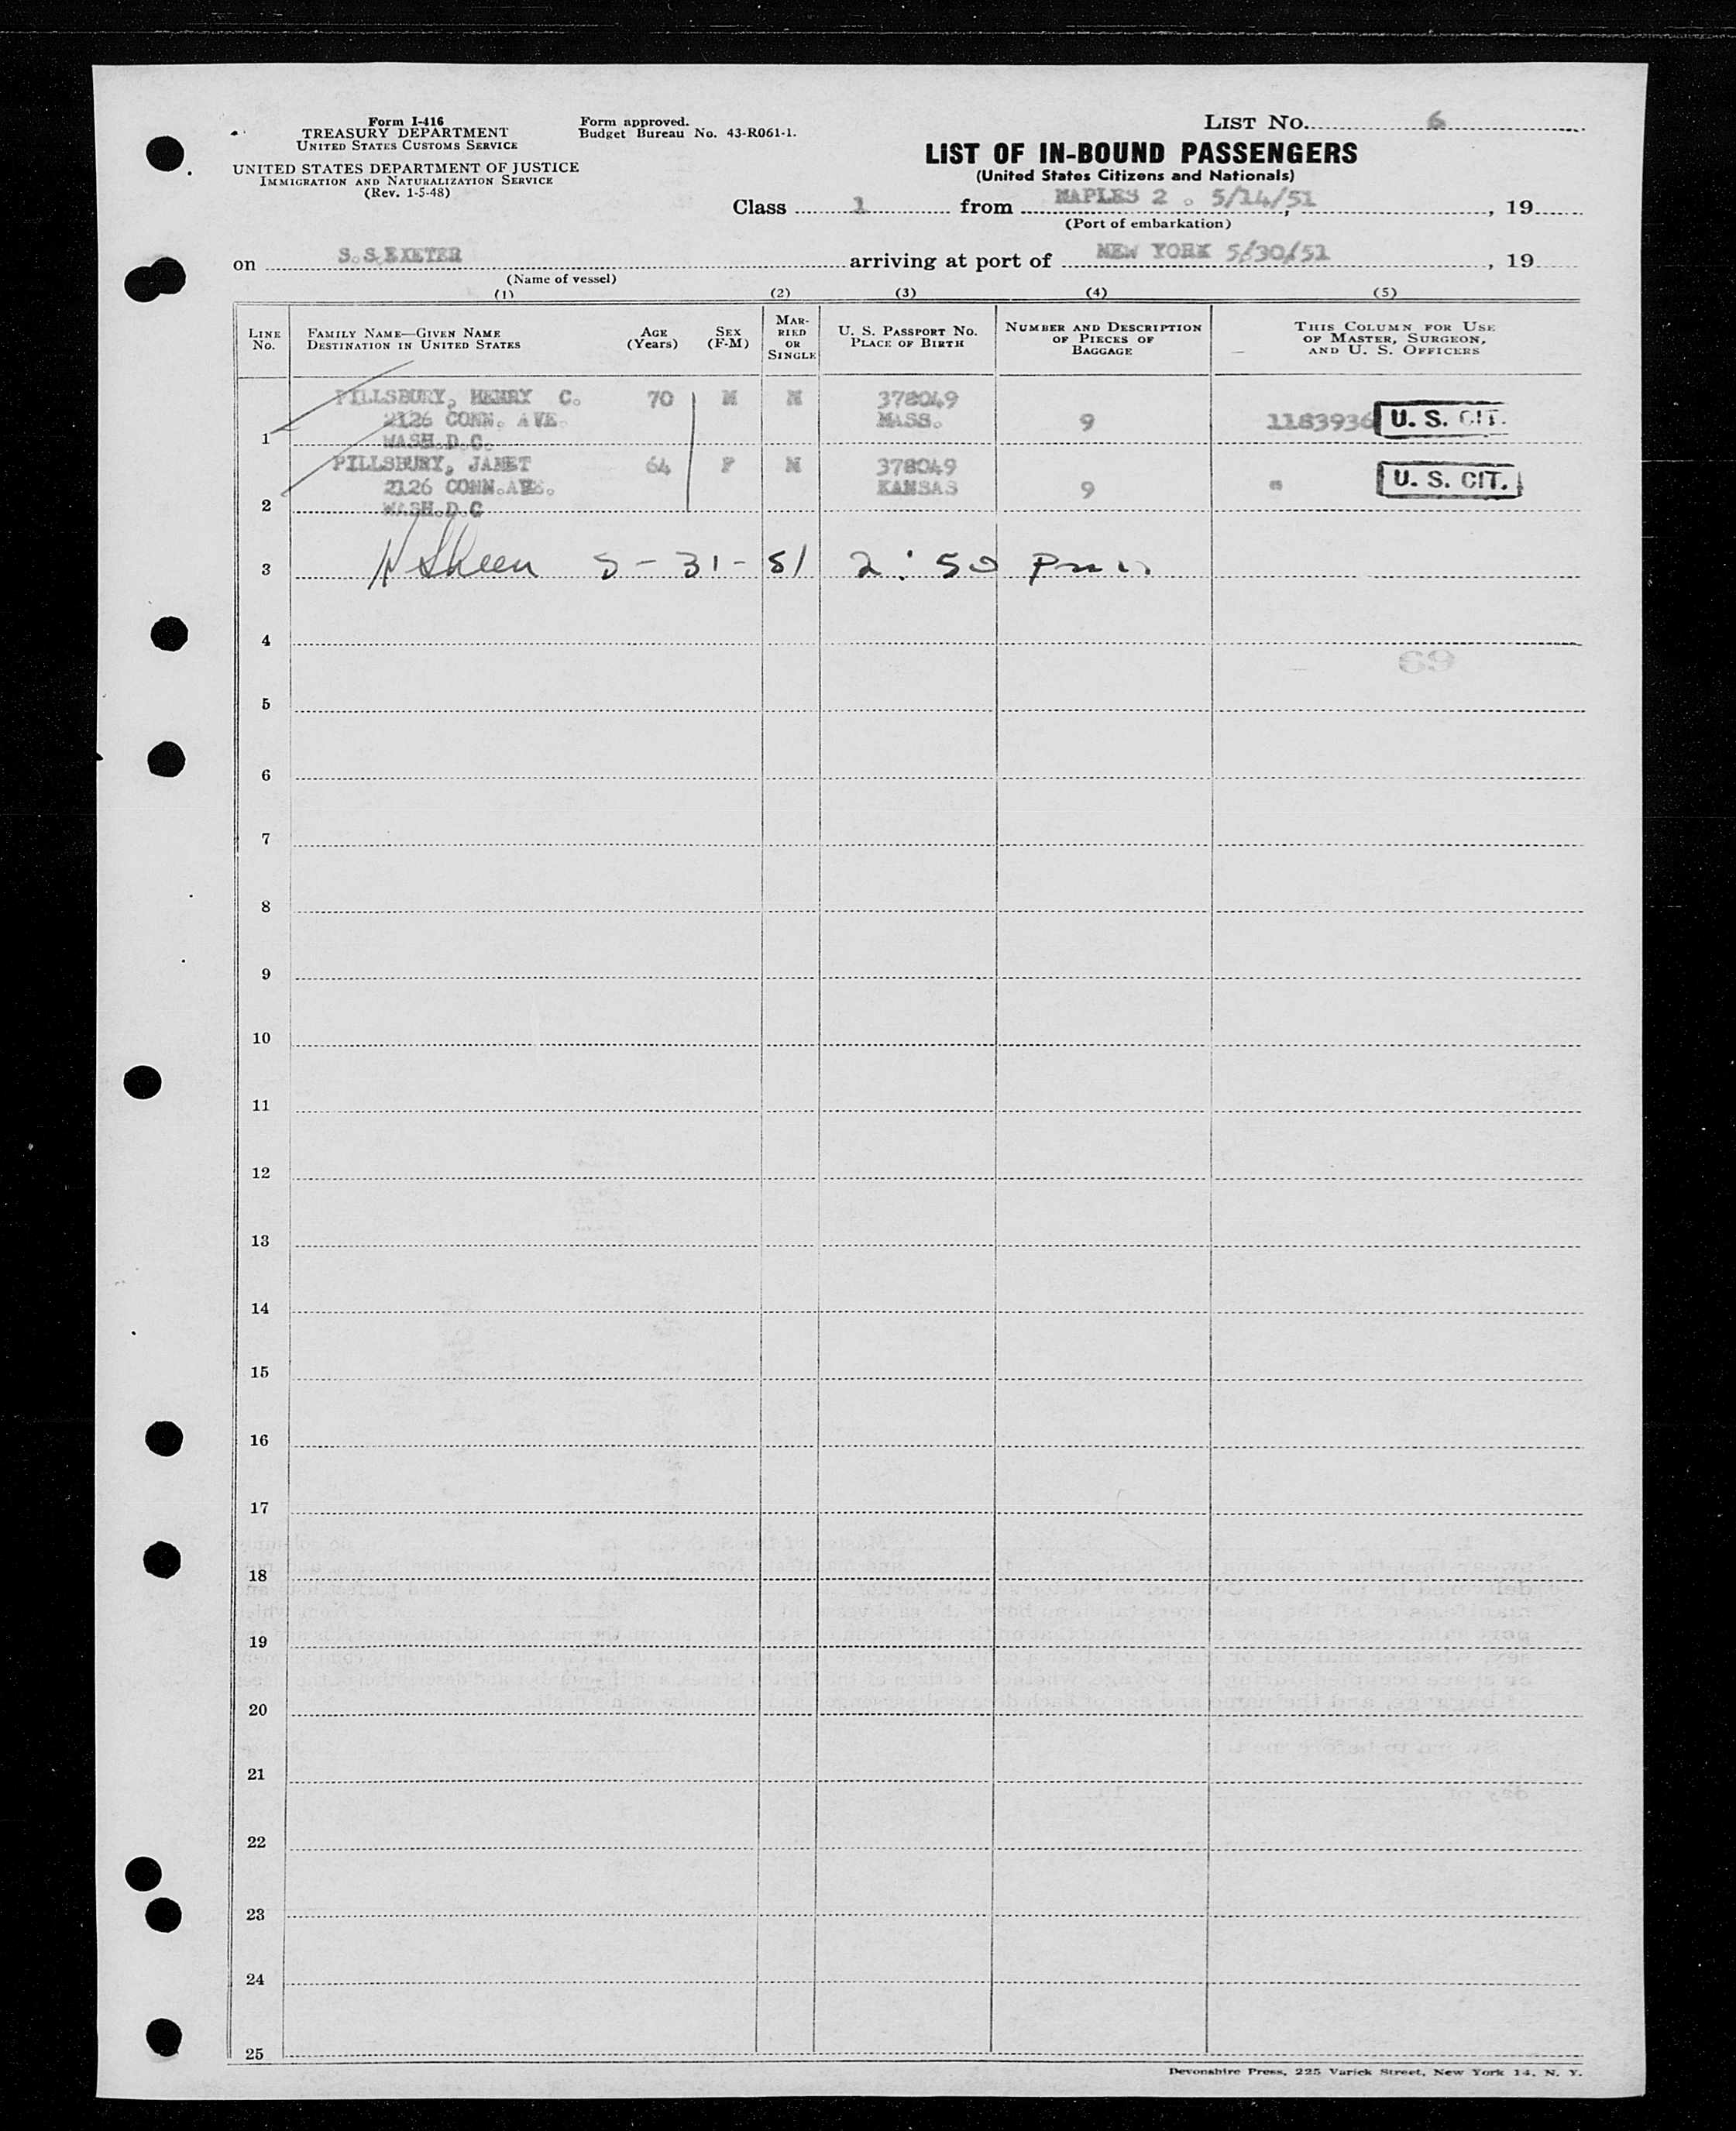 Form I-416
TREASURY DEPARTMENT
UNITED STATES CUSTOMS SERVICE
UNITED STATES DEPARTMENT OF JUSTICE
IMMIGRATION AND NATURALIZATION SERVICE
(Rev. 1-5-48)
Form approved.
Budget Bureau No. 43-R061-1.
LIST NO. 6
LIST OF IN-BOUND PASSENGERS
(United States Citizens and Nationals)
Class 1 from NAPLES 2 . 5/14/51, 19
(Port of embarkation)
on S.S.EXETER arriving at port of NEW YORK 5/30/51, 19
(Name of vessel)
(1) (2) (3) (4) (5)
LINE NO.
FAMILY NAME—GIVEN NAME
DESTINATION IN UNITED STATES
AGE (Years)
SEX (F-M)
MARRIED OR SINGLE
U. S. PASSPORT NO.
PLACE OF BIRTH
NUMBER AND DESCRIPTION OF PIECES OF BAGGAGE
THIS COLUMN FOR USE OF MASTER, SURGEON, AND U. S. OFFICERS
PILLSBURY, HENRY C. 70 M M 378049
2126 CONN. AVE. MASS. 9 1183936 U. S. CIT.
1 WASH.D.C.
PILLSBURY, JANET 64 F M 378049
2126 CONN.AVE. KANSAS 9 " U. S. CIT.
2 WASH.D.C
3 5-31-51 2:50 Pm
4
69
5
6
7
8
9
10
11
12
13
14
15
16
17
18
19
20
21
22
23
24
25
Devonshire Press, 225 Varick Street, New York 14, N. Y.